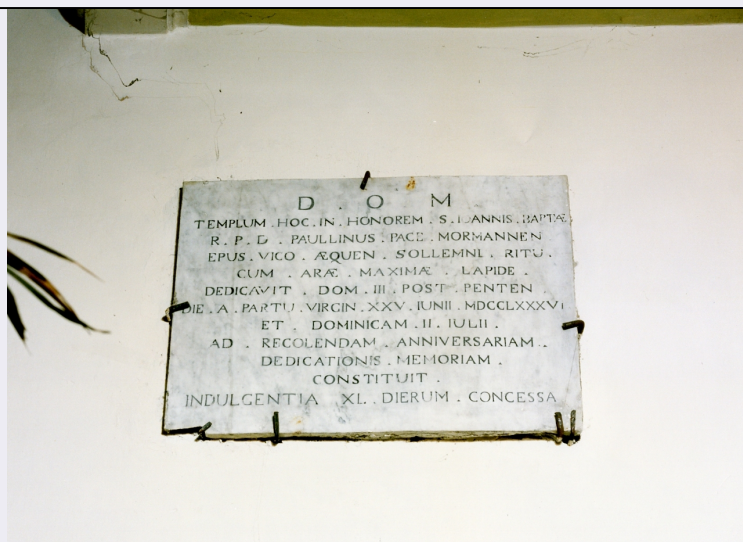 D . O . M
TEMPLUM . HOC . IN . HONOREM . S . IOANNIS . BAPTÆ
R . P . D . PAULLINUS . PACE . MORMANNEN
EPUS . VICO . ÆQUEN . SOLLEMNI . RITU .
CUM . ARÆ . MAXIMÆ . LAPIDE .
DEDICAVIT . DOM . III . POST . PENTEN .
DIE . A . PARTU . VIRGIN . XXV . IUNII . MDCCLXXXVI
ET . DOMINICAM . II . IULII .
AD . RECOLENDAM . ANNIVERSARIAM .
DEDICATIONIS . MEMORIAM .
CONSTITUIT .
INDULGENTIA XL . DIERUM . CONCESSA